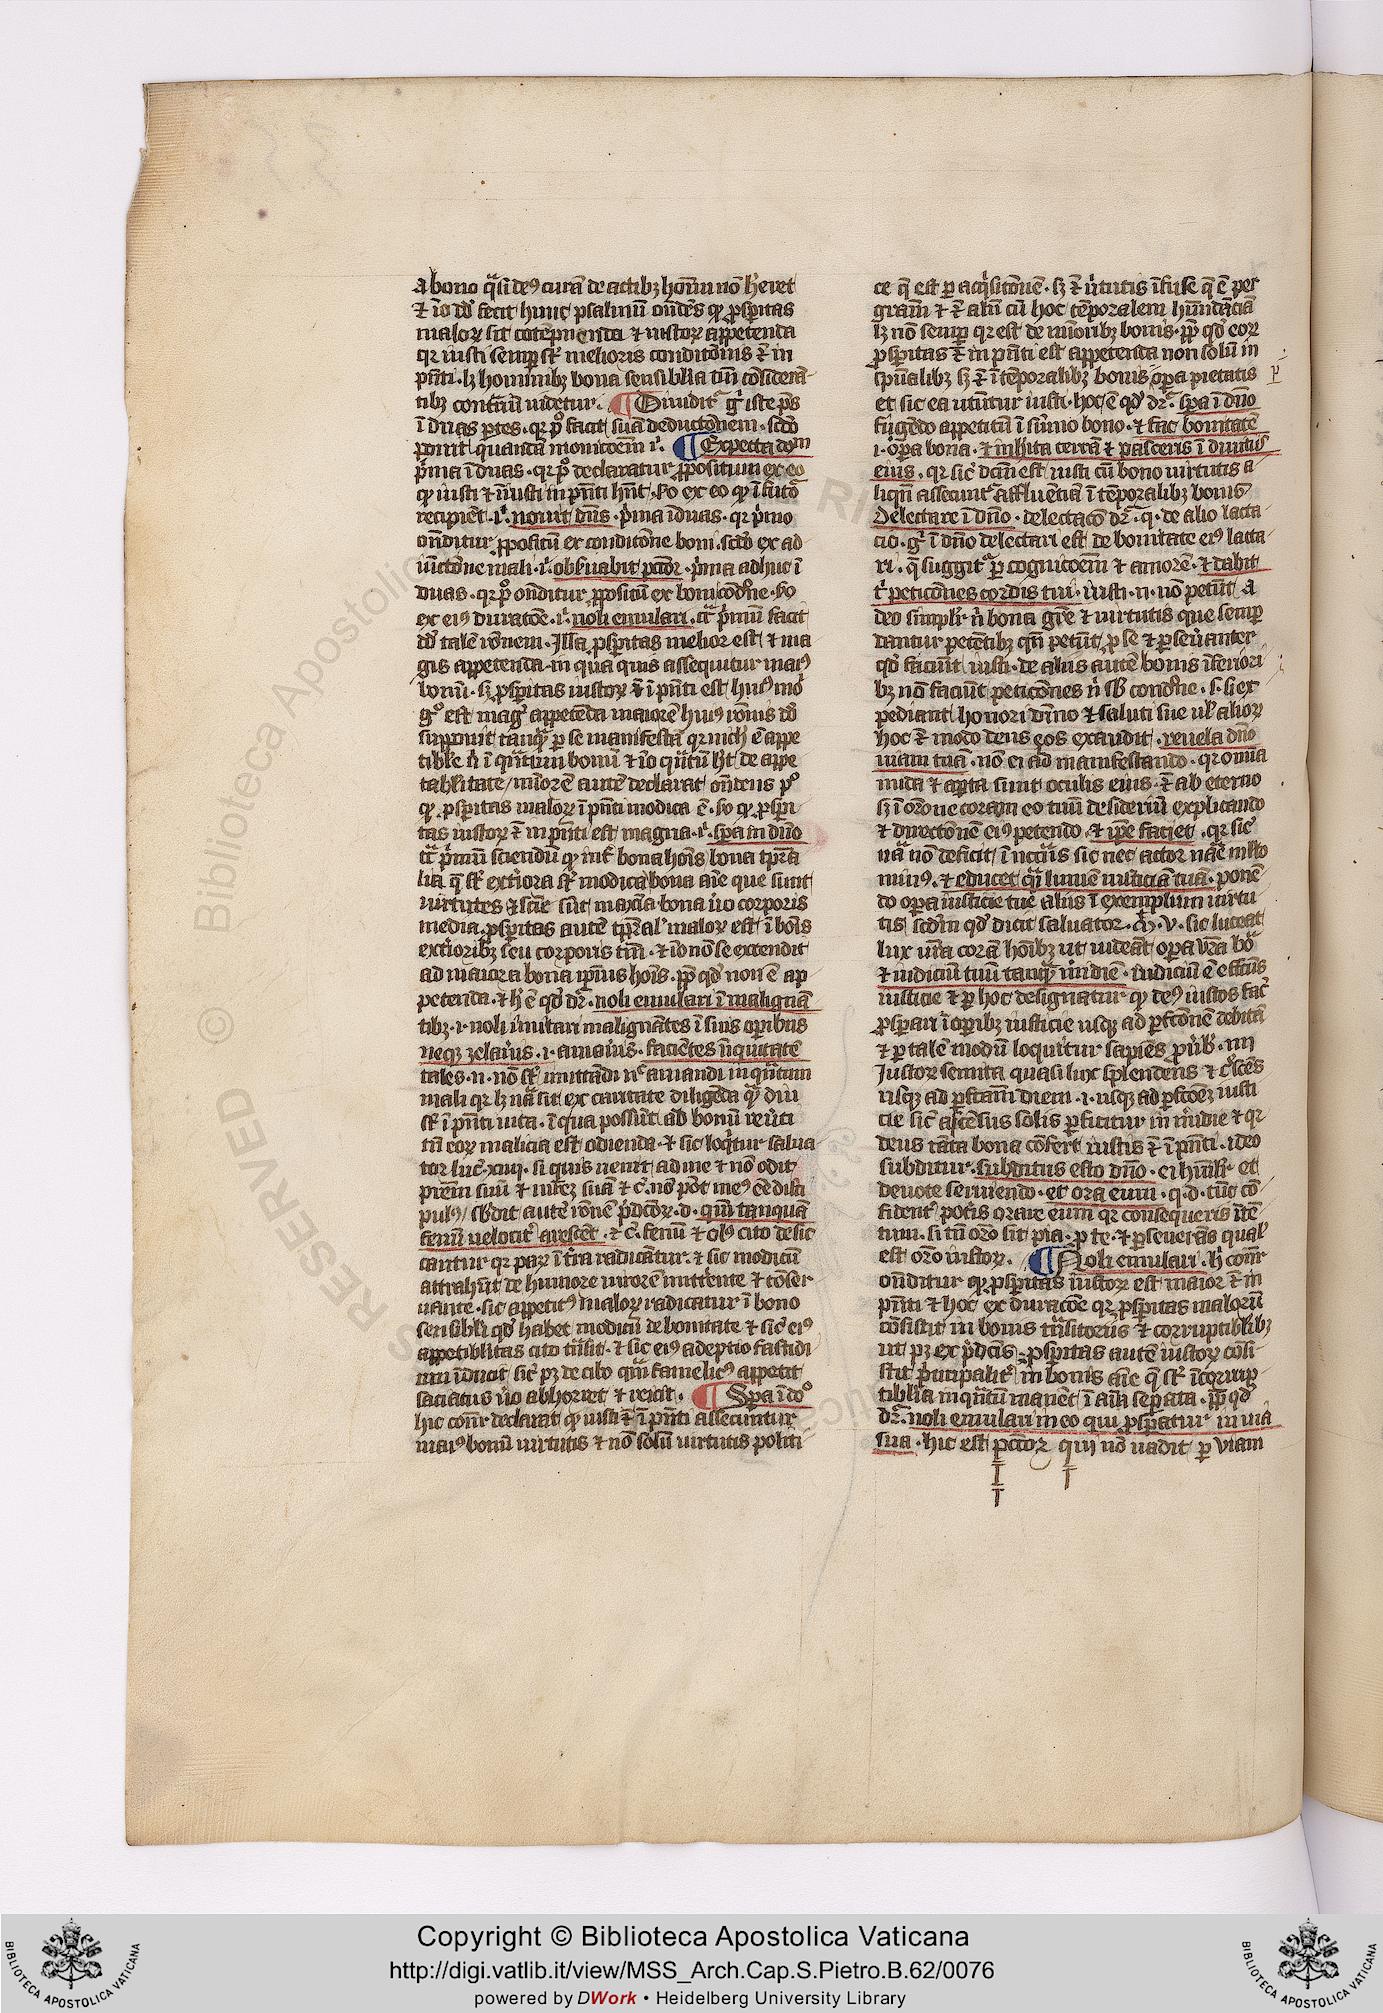 a bono q̄si deꝰ curā de actibꝫ hoīm nō h̄eret
⁊ iō dd̄ fecit hunc psalmū ondēs qꝫ ꝓsꝑitas
maloꝝ sit cōtēpnenda ⁊ iustoꝝ appetenda
qꝛ iusti semꝑ sūt melioris condicōnis ēt in
pn̄ti. lꝫ hominibꝫ bona sensibilia tm̄ cōsiderā-
tibꝫ contrariū videtur. ¶ Diuidit̄ gͥ iste pˢ
ī duas ꝑtes. qꝛ pͦ facit suā deductōnem. scdō
ponit quandā monicōem ī. ¶ Expecta dom̄
pͥma ī duas. qꝛ pͦ declaratur ꝓpositum ex eo
qꝫ iusti ⁊ iniusti in pn̄ti hn̄t. ẜo ex eo qꝫ ī futͦ
recipiēt. ī. nouit dn̄s. pͥma ī duas. qꝛ pͥmo
onditur ꝓpositū ex conditōne boni. scdō ex ad
iūctōne mali. ī. obẜuabit pctōr. pͥma adhuc ī
duas. qꝛ pͦ onditur ꝓpositū ex boni condōne. ẜo
ex eiꝰ duratōe. ī. noli emulari. cͣ pͥmū facit
dd̄ talē rōnem. Illa ꝓsꝑitas melior est ⁊ ma
gis appetenda in qua quis assequitur maiꝰ
bonū. sꝫ ꝓsꝑitas iustoꝝ ēt ī pn̄ti est huiꝰmōi
gͦ est magͥ appetēda maiorē huiꝰ rōnis dd̄
supponit tanqͣ ꝑ se manifestā qꝛ nich̄ ē appe
tibile nͥ ī qn̄tum bonū ⁊ iō qn̄tū h̄t de appe
tabilitate / minorē autē declarat ondens pͦ
qꝫ ꝓsꝑitas maloꝝ ī pn̄ti modica ē. ẜo qꝫ ꝓsꝑi-
tas iustoꝝ ēt in pn̄ti est magna. ī. spa in dn̄o
cͣ pͥmū sciendū qꝫ int̄ bona hoīs bona tp̄ra
lia q̄ sūt ext̄iora sūt modica bona aīe que sunt
virtutes ⁊ scīe sūt maxīa bona v̄o corporis
media. ꝓsꝑitas autē tp̄ralꝰ maloꝝ est ī bōis
ext̄ioribꝫ seu corporis tm̄. ⁊ iō nō se extendit
ad maiora bona ip̄ius hoīs. ꝓpͭ qd̄ non ē ap-
petenda. ⁊ h̄ ē qd̄ dr̄. noli emulari ī malignā
tibꝫ .i. noli imitari malignātes ī suis oꝑibus
neqꝫ zelauīs .i. amauīs. faciētes iniquitatē
tales .n. nō sūt imitādi nͨ amandi inqn̄tum
mali qꝛ lꝫ nā sit ex caritate diligēda qͣ diu
sūt ī pn̄ti vita. ī qua possūt ad bonū reūti
tn̄ eoꝝ malicia est odienda. ⁊ sic loqͥtur salua
tor luc̄. xiiij. si quis venit ad me ⁊ nō odit
prēm suū ⁊ mr̄eꝫ suā ⁊ c̄. nō pōt meꝰ eē disci
pulꝰ / ẜbdit autē rōnē pͥdcōꝝ .d. qm̄ tanquā
fenū velocit̄ arescēt. ⁊ c̄. fenū ⁊ olꝰ cito desic
cantur qꝛ paꝝ ī tr̄a radicātur. ⁊ sic modicū
attrahūt de humore virorē nutriente ⁊ cōser
uante. sic appetitꝰ maloꝝ radicatur ī bono
sensibili qd̄ habet modicū de bonitate ⁊ sic eiꝰ
appetibilitas cito trāsit. ⁊ sic eiꝰ adeptio fastidi
um īducit sic pꝫ de cibo quē famelicꝰ appetit
saciatus v̄o abhorret ⁊ reicit. ¶ Spa ī dō
hic cōnr̄ declarat qꝫ iusti ēt ī pn̄ti assecuntur
maiꝰ bonū virtutis ⁊ nō solū virtutis politi-
ce q̄ est ꝑ acqͥsitōnem. sꝫ ēt v̄tutis īfuse q̄ ē per
grat̄iam ⁊ ēt aliū cū hoc tēporalem habūdāciā
lꝫ nō semꝑ qꝛ est de mīoribꝫ bonis. ꝓpͭ qd̄ eoꝝ
ꝓsꝑitas ēt in pn̄ti est appetenda non solū in
spūalibꝫ sꝫ ēt ī tēporalibꝫ bonis oꝑa pietatis
et sic ea utūtur iusti. hoc ē qd̄ dr̄. spa ī dn̄o
fūgēdo appetitū ī sūmo bono. ⁊ fac bonitatē
.i. oꝑa bona. ⁊ inhita terrā ⁊ pasceris ī diuitiis
eius. qꝛ sic̄ dcm̄ est iusti cū bono virtutis a-
liqn̄ assecunt̄ affluētiā ī tēporalibꝫ bonis
Delectare ī dn̄o. delectacō dr̄ .q. de alio lacta-
cio. gͥ ī dn̄o delectari est de bonitate eiꝰ lacta-
ri. q̄ suggit̄ ꝑ cognicōem ⁊ amorē. ⁊ dabit
t̄ peticōnes cordis tui. iusti .n. nō petūt a
deo simplr̄ nͥ bona gr̄e ⁊ virtutis que semꝑ
dantur petētibꝫ qn̄ petūt ꝓ se ⁊ ꝑseūanter
qd̄ faciūt iusti. de aliis autē bonis īferiori
bꝫ non faciūt peticōnes nͥ ẜb condōne .s. si ex
pediant honori diuīo ⁊ saluti sue ul̄ alioꝝ
hoc ēt modo deus eos exaudit. reuela dn̄o
viam tuā. nō ei ad manifestando. qꝛ omīa
nuda ⁊ aꝑta sunt oculis eius. ēt ab eterno
sꝫ ī orōne coram eo tuū desideriū explicando
⁊ directōnē eiꝰ petendo. ⁊ ip̄e faciet. qꝛ sic̄
nā nō deficit ī nccͥis sic nec actor nāe ml̄to
minꝰ. ⁊ educet qͣi lumē iusticiā tuā. ponē
do oꝑa iusticie tue aliis ī exemplum virtu
tis scdm̄ qd̄ dicit saluator. M̄. v. sic luceat
lux vr̄a corā hoībꝫ ut videāt oꝑa vr̄a bōͣ
⁊ iudiciū tuū tanqͣ mͥdiē. iudiciū ē effcūs
iusticie ⁊ ꝑ hoc designatur qꝫ deꝰ iustos fac̄
ꝓsꝑari ī oꝑibꝫ iusticie usqꝫ ad ꝑfcōnē debitā
⁊ ꝑ talē modū loquitur sapiēs prouͦb. iiii
Justoꝝ semita quasi lux splendens ⁊ crͦscēs
usqꝫ ad ꝑfectam diem .i. usqꝫ ad ꝑfcōeꝫ iusti
cie sic̄ ascēsus solis ꝑficitur in mͥdie ⁊ qꝛ
deus tāta bona cōfert iustis ēt ī pn̄ti. ideo
subditur. subditus esto dn̄o. ei hūilr̄ et
deuote seruiendo. et ora eum .q.d. tūc cō
fident̄ potͥs orare eum qꝛ consequeris ītē
tum. si tn̄ orō sit pia. ꝓ te. ⁊ ꝑseuerās qual̄
est orō iustoꝝ. ¶ Noli emulari. hͥ cōnr̄
onditur qꝫ ꝓsꝑitas iustoꝝ est maior ēt in
pn̄ti ⁊ hoc ex duracōe qꝛ ꝓsꝑitas malorū
cōsistit in bonis trāsitoriis ⁊ corruptibilibꝫ
ut pꝫ ex pͥdcīs. ꝓsꝑitas autē iustoꝝ cōsi-
stit pͥncipalit̄ in bonis aīe q̄ sūt īcorrup-
tibilia inqn̄tū manēt ī aīa seꝑata. ꝓpͭ qd̄
dr̄. noli emulari in eo qui ꝓsꝑatur in viā
sua. hic est pctōꝝ qui nō vadit ꝑ viam
Copyright © Biblioteca Apostolica Vaticana
http://digi.vatlib.it/view/MSS_Arch.Cap.S.Pietro.B.62/0076
powered by DWork • Heidelberg University Library